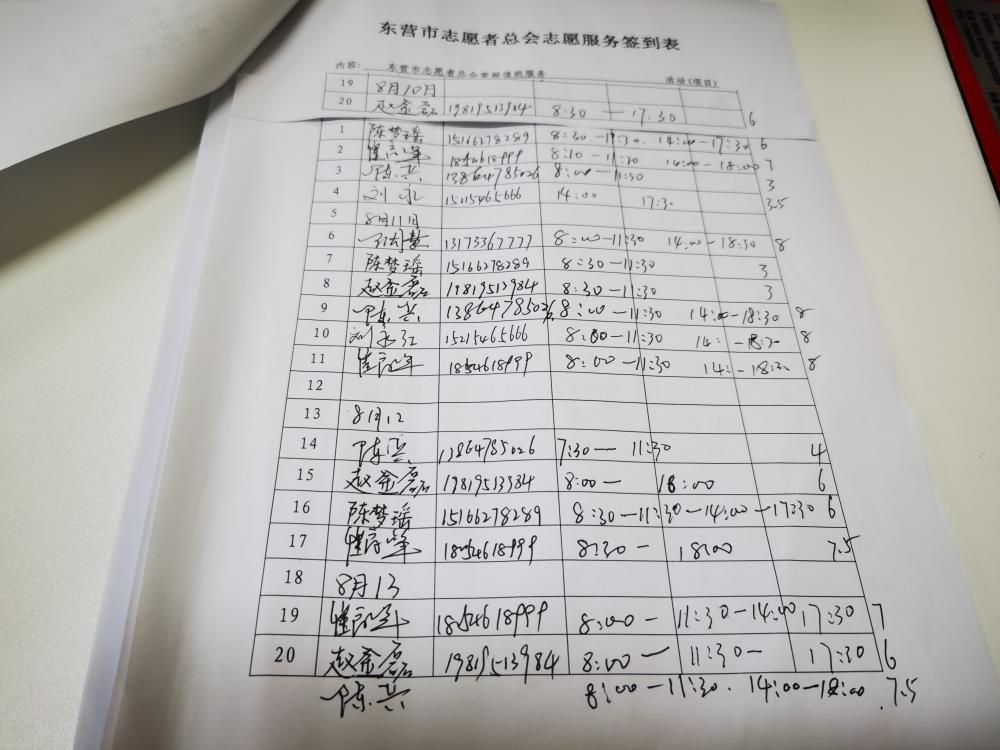 东营市志愿者总会志愿服务签到表
内容: 东营市志愿者总会 服务 活动(项目)
19 8月10日
20 赵金磊 19819513984 8:30 — 17:30 6
1 陈梦瑶 15166278289 8:30-11:30. 14:00-17:30 6
2 1854618999 8:10-11:30 14:00-18:00 7
3 陈兵 13864785026 8:00-11:30 3
4 刘永 15215465666 14:00 17:30 3.5
5 8月11日
6 13173367777 8:00-11:30 14:00-18:30 8
7 陈梦瑶 15166278289 8:30-11:30 3
8 赵金磊 19819513984 8:30-11:30 3
9 陈兵 13864785026 8:00-11:30 14:00-18:30 8
10 刘永红 15215465666 8:00-11:30 14: - 18:30 8
11 1854618999 8:00-11:30 14: - 18:30 8
12
13 8月12
14 陈兵 13864785026 7:30— 11:30 4
15 赵金磊 19819513984 8:00— 18:00 6
16 陈梦瑶 15166278289 8:30—11:30—14:00—17:30 6
17 1854618999 8:30— 18:00 7.5
18 8月13
19 1854618999 8:00— 11:30—14:00 17:30 7
20 赵金磊 19819513984 8:00— 11:30— 17:30 6
陈兵 8:00—11:30. 14:00—18:00 7.5